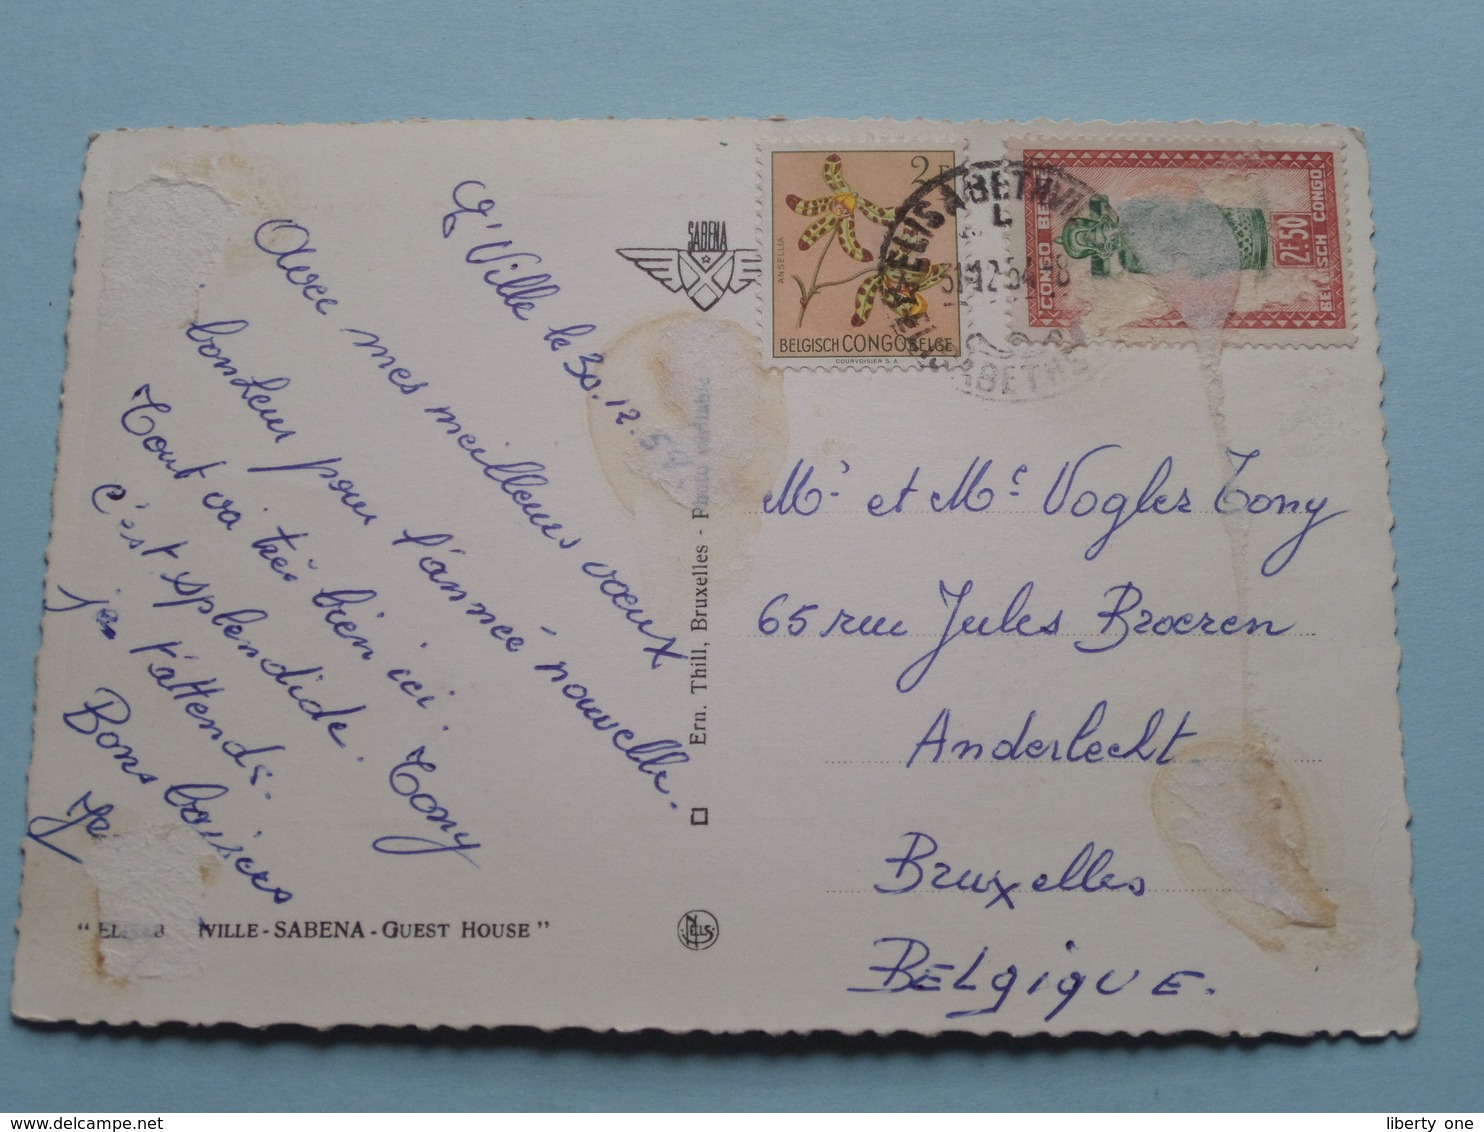 E'Ville le 30.12.54
Avec mes meilleurs vœux
bonheur pour l'année nouvelle.
Tout va très bien ici. Tony
c'est splendide.
je t'attends.
Bons baisers
SABENA
2 F
ANSELLIA
BELGISCH CONGO BELGE
COURVOISIER S. A.
CONGO BELGE
2F.50
BELGISCH CONGO
ELISABETHVILLE
31-12-54
Ern. Thill, Bruxelles -
Mr et Me Vogler Tony
65 rue Jules Broeren
Anderlecht
Bruxelles
BELgiqUE.
VILLE - SABENA - GUEST HOUSE "
NELS
liberty one